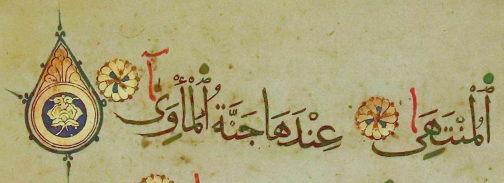 الْمُنْتَهَىٰ عِنْدَهَا جَنَّةُ الْمَأْوَىٰ